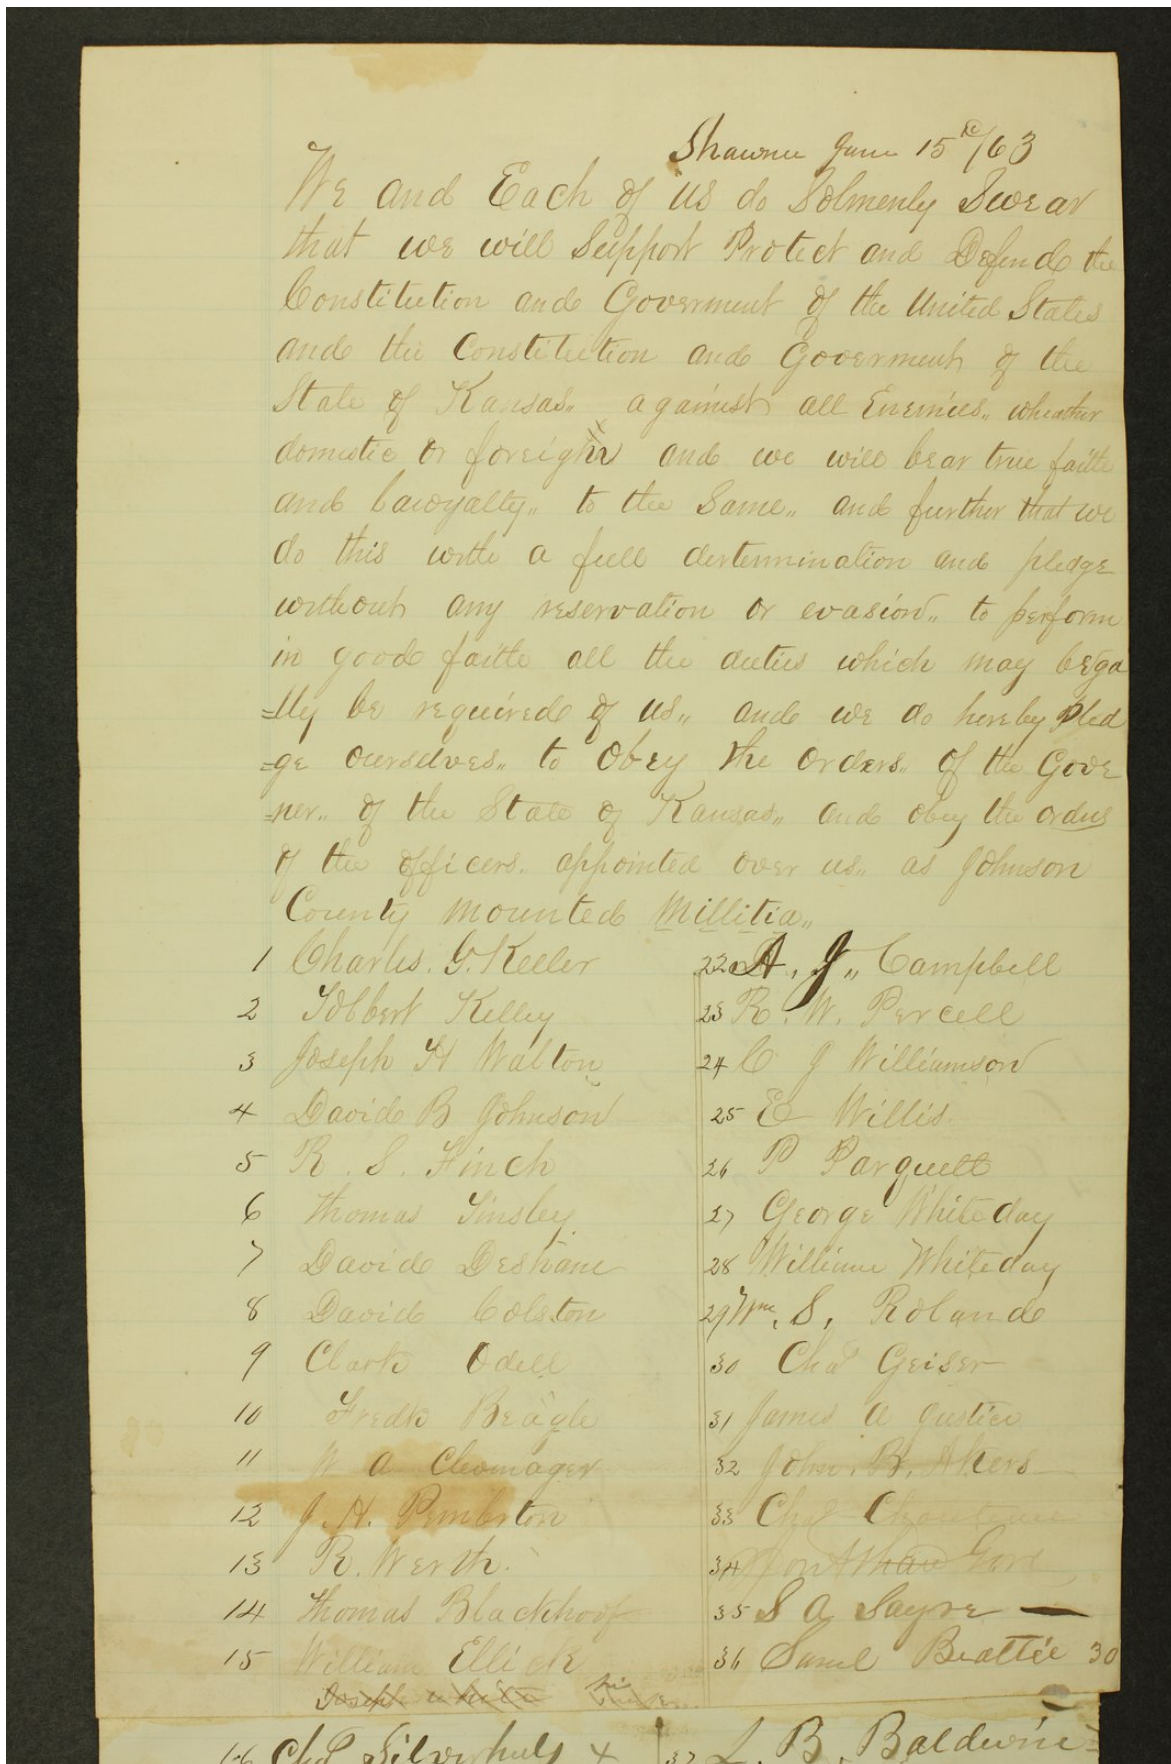 Shawnee June 15th/63
We and Each of us do Solmenly Swear
that we will Support Protect and Defend the
Constitution and Goverment of the United States
and the Constitution and Goverment of the
State of Kansas,, against all Enemies,, wheather
domestic or foreighn and we will bear true faith
and Lawoyalty,, to the Same,, and further that we
do this with a full dertermination and pledge
without any reservation or evasion,, to perform
in good faith all the duties which may Lega
=lly be required of us,, and we do hereby Pled
=ge ourselves,, to Obey the Orders,, of the Gove
=ner,, of the State of Kansas,, and obey the orders
of the officers. appointed over us,, as Johnson
County Mounted Millitia,,
1 Charles. G. Keller
2 Tolbert Kelley
3 Joseph H Walton
4 David B Johnson
5 R. S. Finch
6 Thomas Tinsley
7 David Deshane
8 David Colston
9 Clark Odell
10 Fredk Beagle
11 W A Clevenager
12 J. H. Pemberton
13 R. Werth.
14 Thomas Blackhoof
15 William Ellick
Joseph White his
16 Chas Silverheels x
22 A. J,, Campbell
23 R. W. Percell
24 C J Williamson
25 E Willis.
26 P Parquett
27 George Whiteday
28 William Whiteday
29 Wm. S. Roland
30 Chas Geiser
31 James A Justice
32 John. B. Akers
33 Chas Chouteau
34
35 S A Sayre —
36 Saml Beattie 30
37 L. B. Baldwin